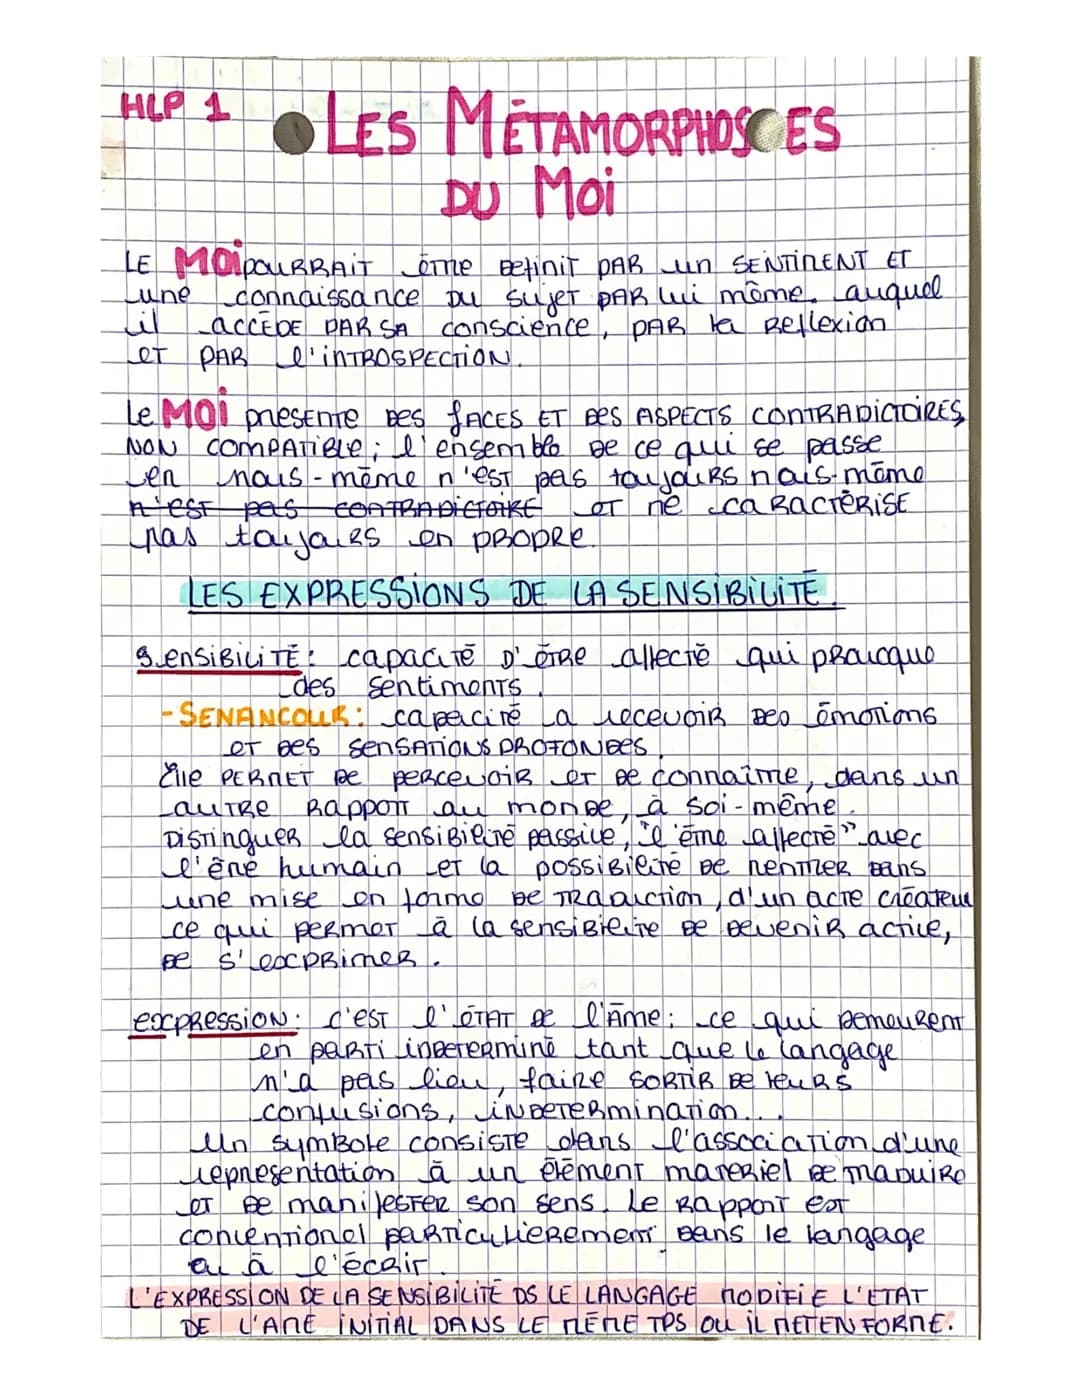 HLP 1
LES MÉTAMORPHOSES
DU MOi
LE MOi POURRAIT ÊTRE DEfiNiT PAR un SENTiMENT ET
une connaissance DU sujet PAR lui même. auquel
il ACCÈDE PAR SA conscience, PAR la Reflexion
ET PAR l'iNTROSPECTiON.
Le MOi presente DES fACES ET DES ASPECTS CONTRADICTOIRES,
NON COMPATiBLE ; l'ensemble De ce qui se passe
en nous-même n'EST pas toujours nous-même
n'EST pas CONTRADiCTOiRE ET ne caRACTÉRiSE
pas toujours en PROPRE.
LES EXPRESSiONS DE LA SENSiBiLiTÉ.
SENSiBiLiTÉ : capaciTé D'ÊTRE affecté qui pRovoque
des sentiments.
- SENANCOUR : capacité a recevoiR Des émotions
ET Des SENSATiONS PROfONDES.
Elle PERMET De percevoiR et De connaître, dans un
autre Rapport au monDe, à soi-même.
DiSTiNGUER la sensiBilité passive, "l'être affecté" avec
l'être humain et la possiBilité De rentrer Dans
une mise en forme De TRaduction, d'un acte créateur
ce qui permet à la sensiBilité De DeveniR active,
De s'exPRimeR.
exPRession : c'EST l'ÉTAT De l'Âme ; ce qui Demeurent
en parti inDETERminé tant que le langage
n'a pas lieu, faire SORTiR De leurs
confusions, iNDETERmination...
Un symBole consiste dans l'association d'une
representation à un élément materiel De traduiRe
et De manifester son sens. Le Rapport est
conventionel paRTiculieRement Dans le langage
ou à l'écrit.
L'EXPRESSiON DE LA SENSiBiLiTÉ DS LE LANGAGE MODiFiE L'ETAT
DE L'AME iNiTiAL DANS LE MÊME TPS OU iL MET EN FORME.